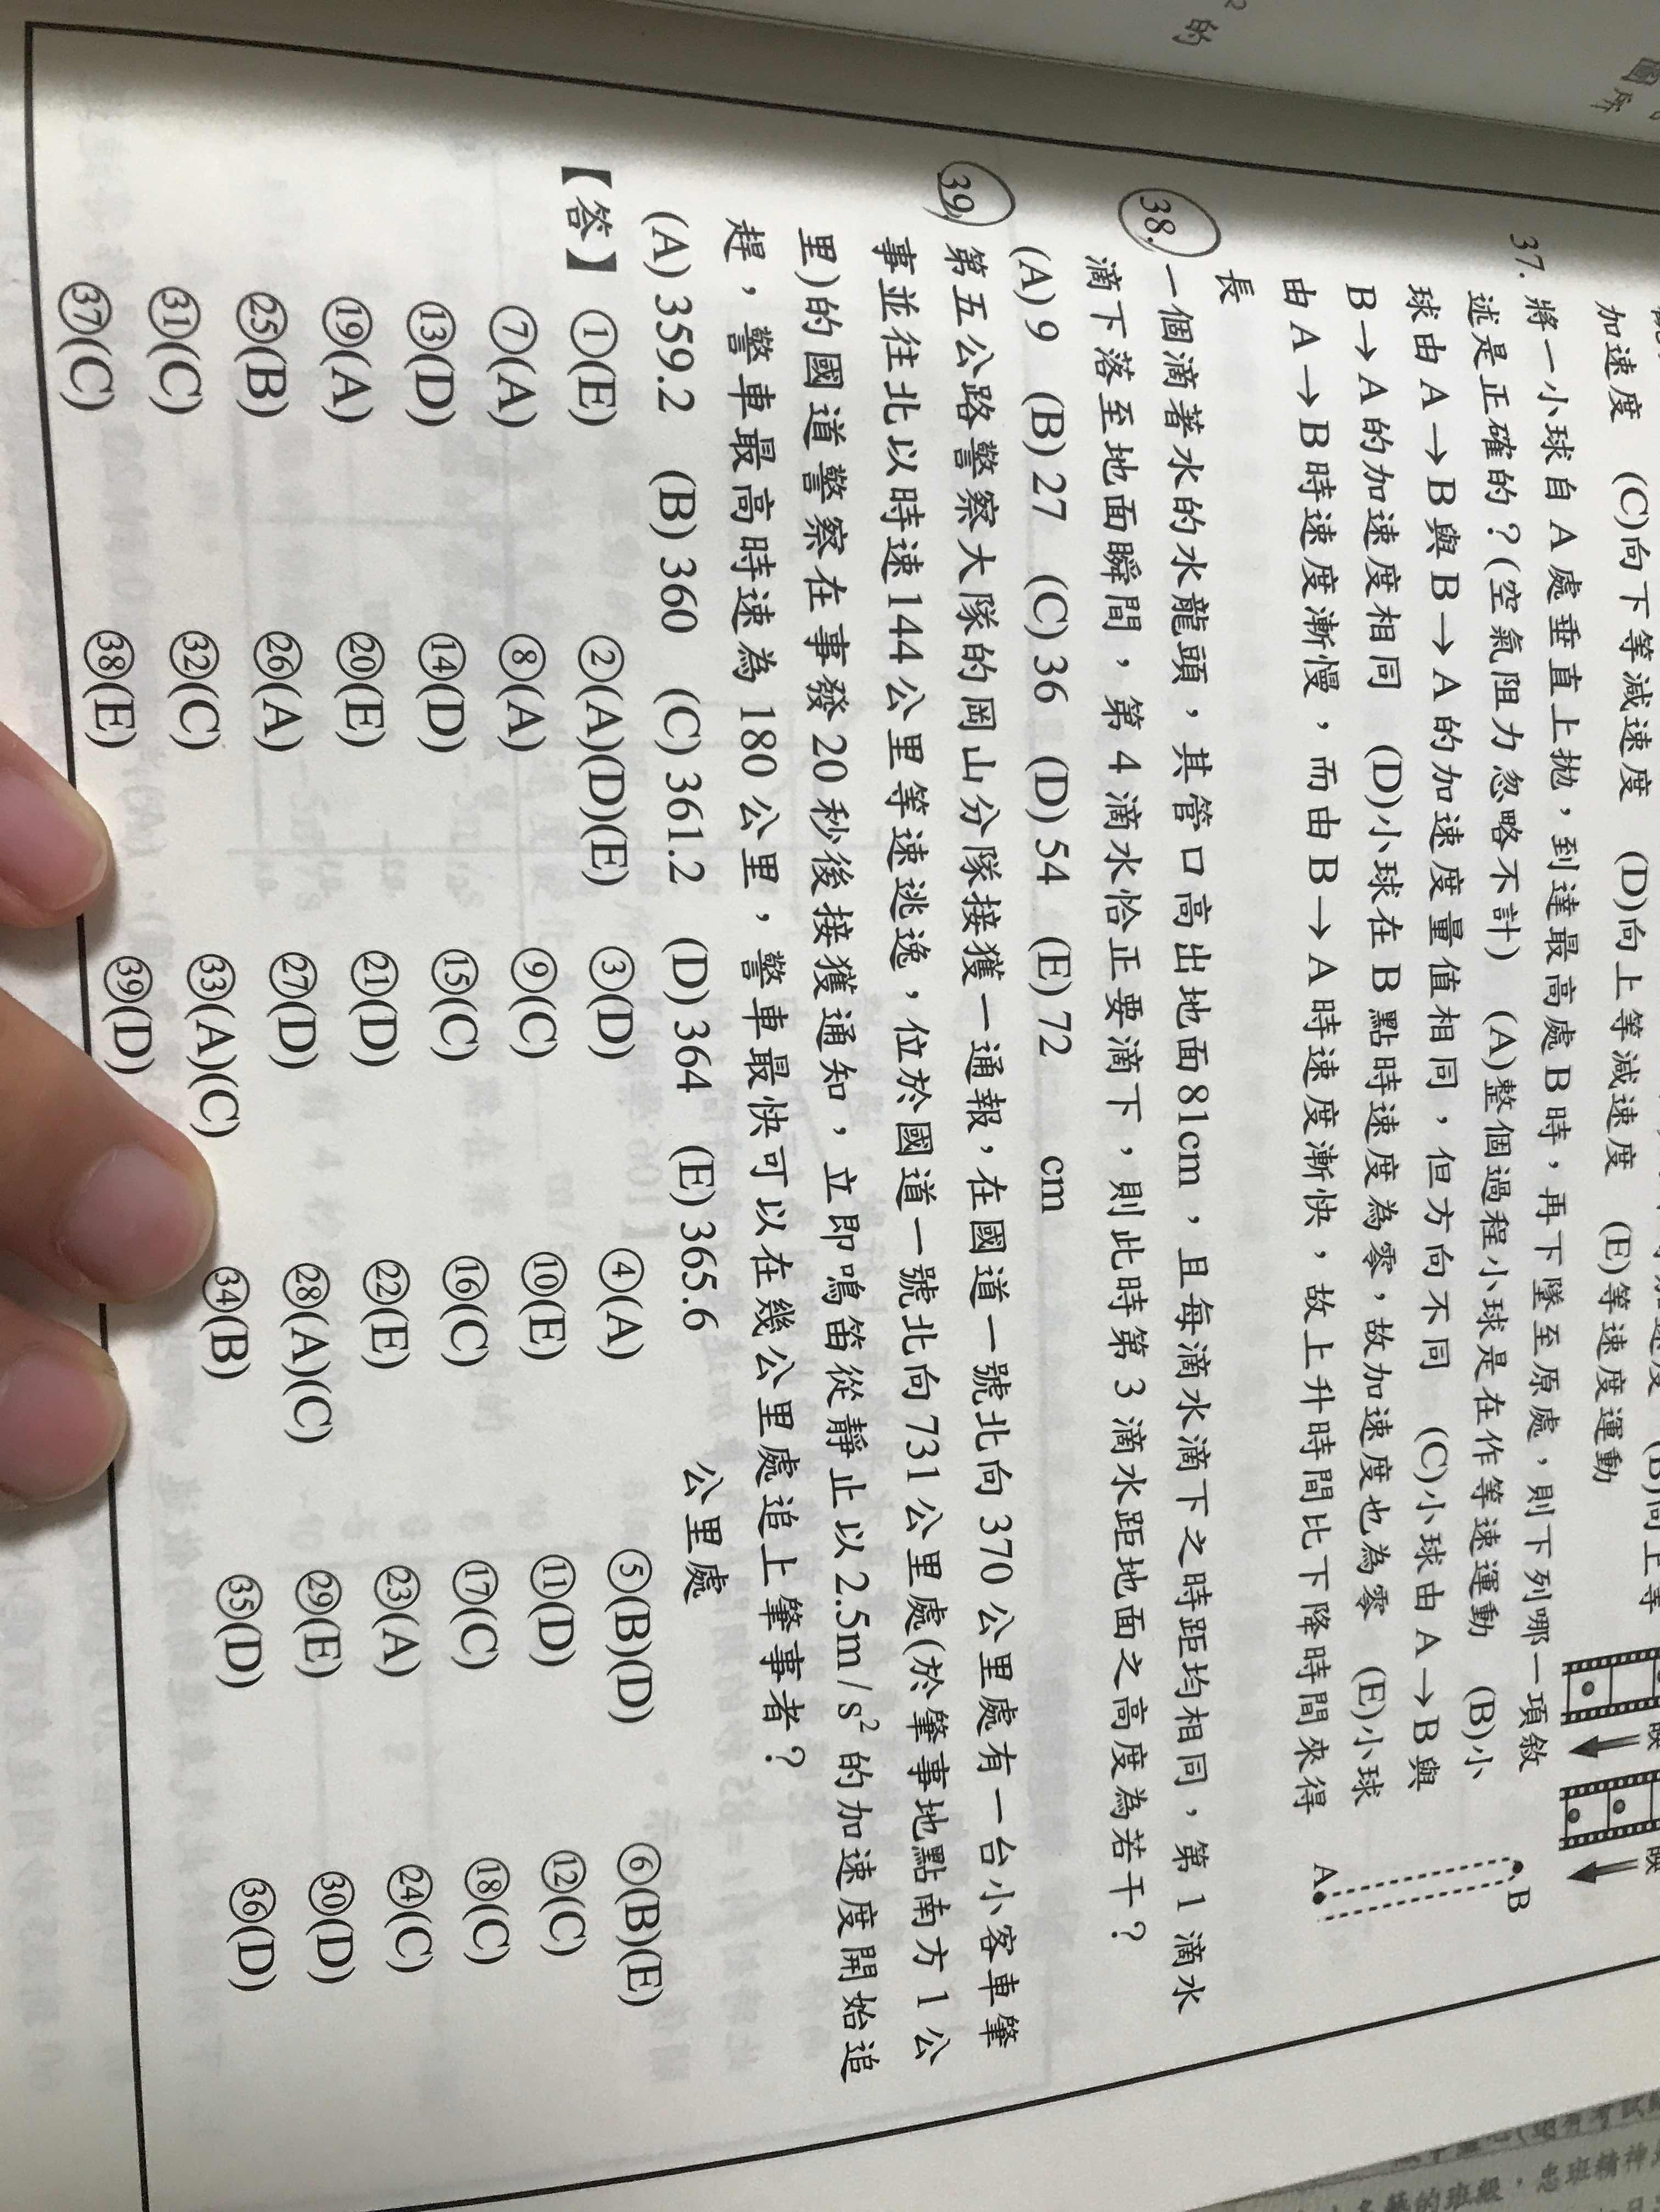 加速度 (C)向下等減速度 (D)向上等減速度 (E)等速度運動
37. 將一小球自 A 處垂直上拋，到達最高處 B 時，再下墜至原處，則下列哪一項敘
述是正確的？(空氣阻力忽略不計) (A)整個過程小球是在作等速運動 (B)小
球由 A→B 與 B→A 的加速度量值相同，但方向不同 (C)小球由 A→B 與
B→A 的加速度相同 (D)小球在 B 點時速度為零，故加速度也為零 (E)小球
由 A→B 時速度漸慢，而由 B→A 時速度漸快，故上升時間比下降時間來得
長
B
A
38. 一個滴著水的水龍頭，其管口高出地面 81cm，且每滴水滴下之時距均相同，第 1 滴水
滴下落至地面瞬間，第 4 滴水恰正要滴下，則此時第 3 滴水距地面之高度為若干？
(A) 9 (B) 27 (C) 36 (D) 54 (E) 72 cm
39. 第五公路警察大隊的岡山分隊接獲一通報，在國道一號北向 370 公里處有一台小客車肇
事並往北以時速 144 公里等速逃逸，位於國道一號北向 731 公里處(於肇事地點南方 1 公
里)的國道警察在事發 20 秒後接獲通知，立即鳴笛從靜止以 2.5m / s² 的加速度開始追
趕，警車最高時速為 180 公里，警車最快可以在幾公里處追上肇事者？
(A) 359.2 (B) 360 (C) 361.2 (D) 364 (E) 365.6 公里處
【答】 ①(E) ②(A)(D)(E) ③(D) ④(A) ⑤(B)(D) ⑥(B)(E)
⑦(A) ⑧(A) ⑨(C) ⑩(E) ⑪(D) ⑫(C)
⑬(D) ⑭(D) ⑮(C) ⑯(C) ⑰(C) ⑱(C)
⑲(A) ⑳(E) ㉑(D) ㉒(E) ㉓(A) ㉔(C)
㉕(B) ㉖(A) ㉗(D) ㉘(A)(C) ㉙(E) ㉚(D)
㉛(C) ㉜(C) ㉝(A)(C) ㉞(B) ㉟(D) ㊱(D)
㊲(C) ㊳(E) ㊴(D)
的班級，忠班精神